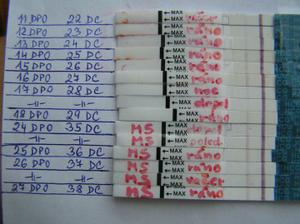 11 DPO 22 DC ←MAX
12 DPO 23 DC ←MAX ráno
13 DPO 24 DC ←MAX
14 DPO 25 DC ←MAX ráno
15 DPO 26 DC ←MAX ráno
16 DPO 27 DC ←MAX ráno
17 DPO 28 DC ←MAX noc
-11- -11- ←MAX
18 DPO 29 DC ←MAX ráno
24 DPO 35 DC MS ←MAX
-11- -11- MS ←MAX poled.
25 DPO 36 DC MS ←MAX ráno
26 DPO 37 DC MS ←MAX ráno
-11- -11- MS ←MAX večer
27 DPO 38 DC MS ←MAX ráno